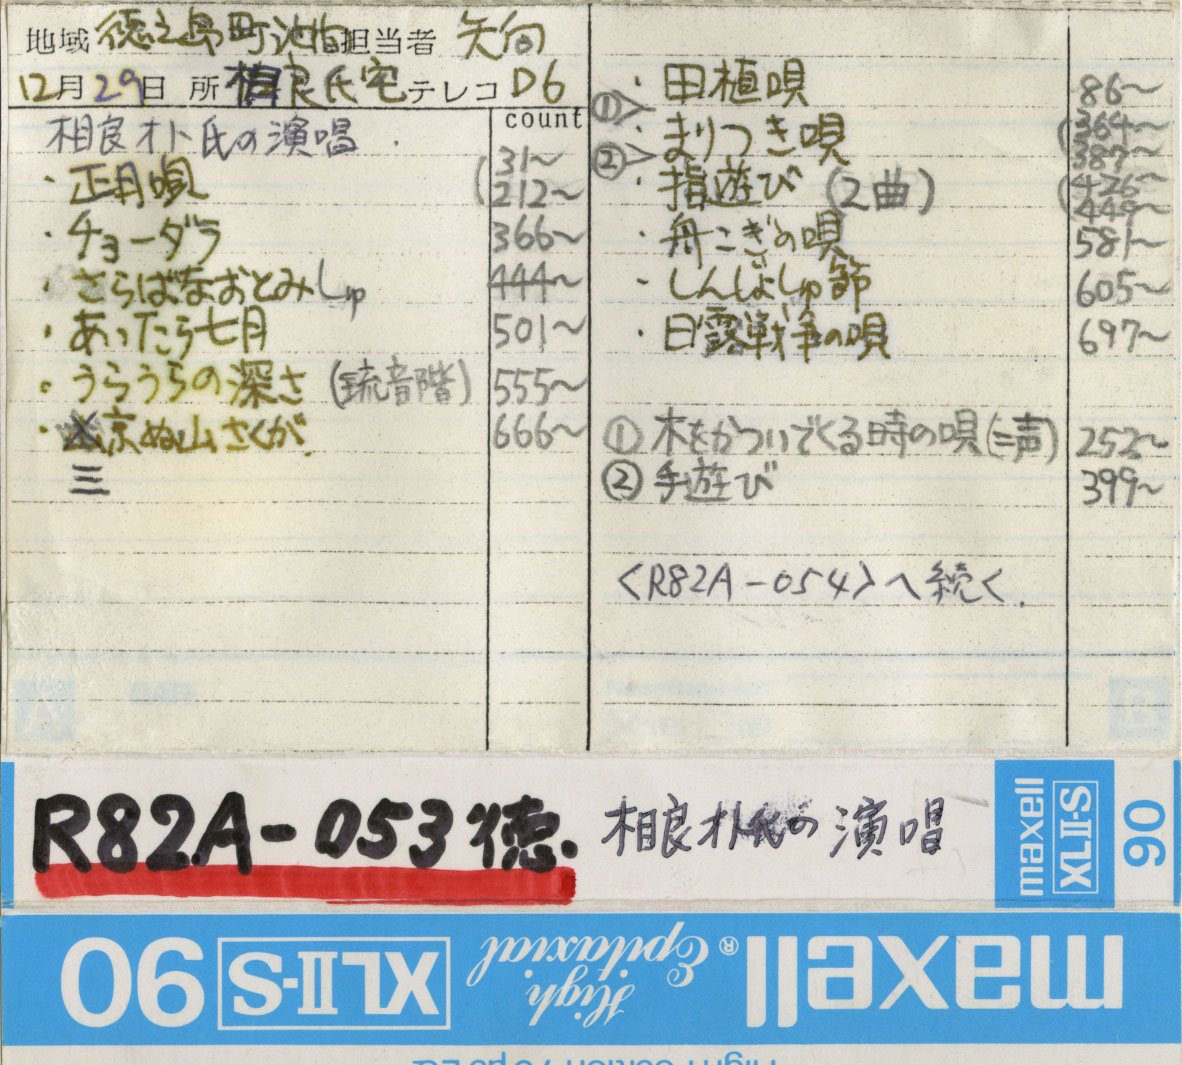 地域 徳之島町池間 担当者 矢向
12月29日 所 相良氏宅 テレコ D6
count
相良朴氏の演唱
・正月唄 (31〜
212〜
・チョーダラ 366〜
・さらばなおとみしゅ 444〜
・あったら七月 501〜
・うらうらの深さ (琉音階) 555〜
・京ぬ山さくが 666〜
三
・田植唄 86〜
①>
・まりつき唄 (364〜
387〜
②>
・指遊び (2曲) (426〜
449〜
・舟こぎの唄 581〜
・しんじょしゅ節 605〜
・日露戦争の唄 697〜
①木をかついでくる時の唄(二声) 252〜
②手遊び 399〜
<R82A-054>へ続く.
R82A-053徳. 相良朴氏の演唱
maxell XLII-S 90
maxell® High Epitaxial XLII-S 90